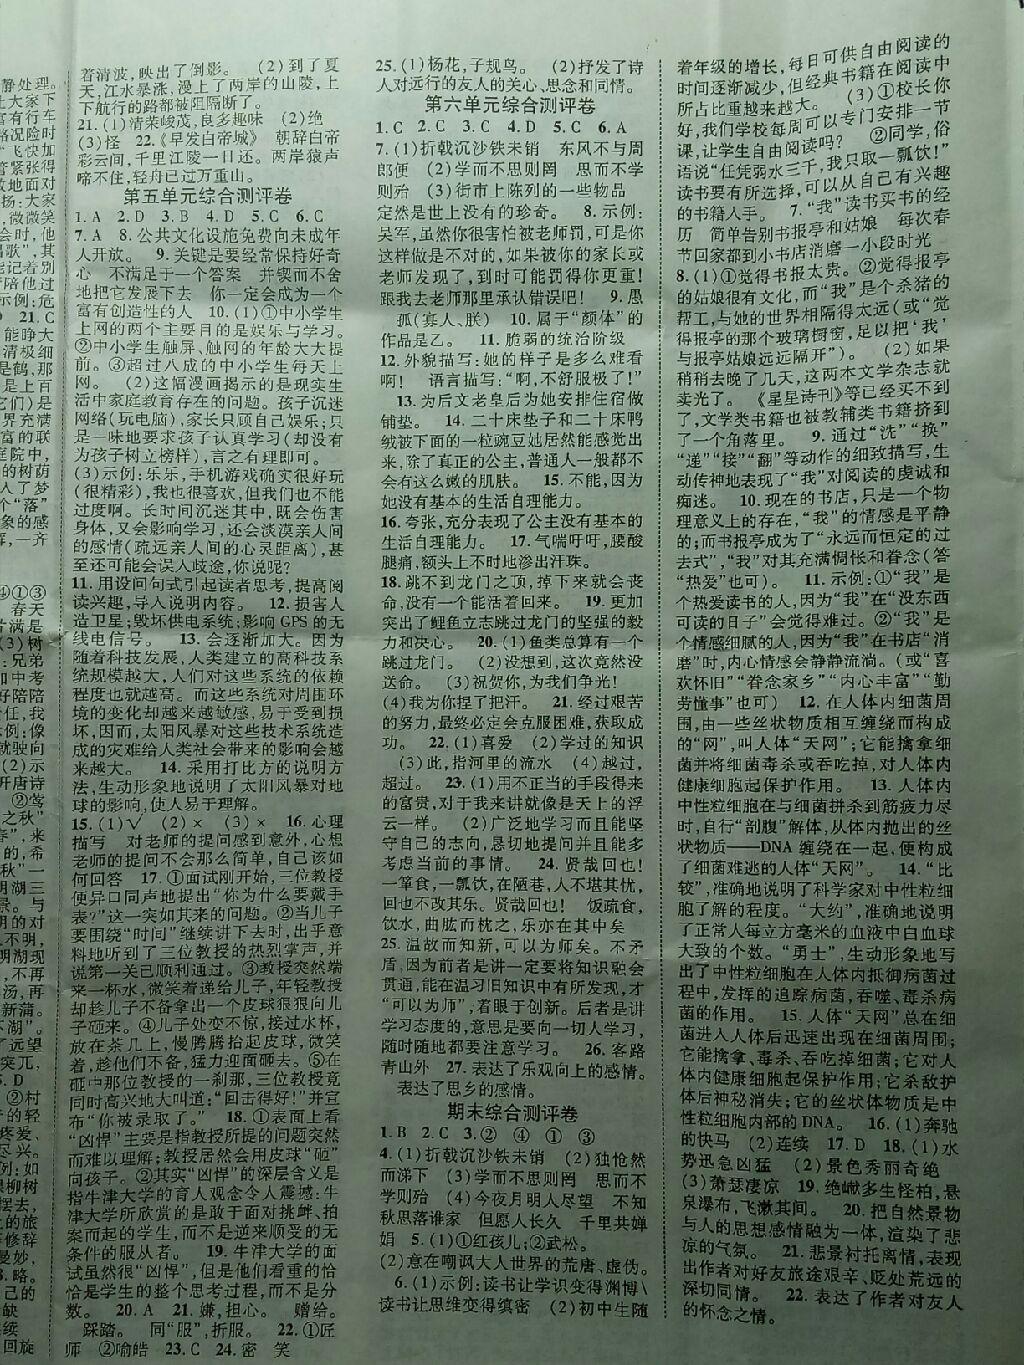 着清波,映出了倒影。 (2)到了夏
天,江水暴涨,漫上了两岸的山陵,上
下航行的路都被阻隔断了。
21. (1)清荣峻茂,良多趣味 (2)绝
(3)怪 22.《早发白帝城》 朝辞白帝
彩云间,千里江陵一日还。两岸猿声
啼不住,轻舟已过万重山。
第五单元综合测评卷
1. A 2. D 3. B 4. D 5. C 6. C
7. A 8. 公共文化设施免费向未成年
人开放。 9. 关键是要经常保持好奇
心 不满足于一个答案 并锲而不舍
地把它发展下去 你一定会成为一个
富有创造性的人 10. (1)①中小学生
上网的两个主要目的是娱乐与学习。
②中小学生触屏、触网的年龄大大提
前。③超过八成的中小学生每天上
网。 (2)这幅漫画揭示的是现实生
活中家庭教育存在的问题。孩子沉迷
网络(玩电脑),家长只顾自己娱乐;只
是一味地要求孩子认真学习(却没有
为孩子树立榜样),言之有理即可。
(3)示例:乐乐,手机游戏确实很好玩
(很精彩),我也很喜欢,但我们也不能
过度啊。长时间沉迷其中,既会伤害
身体,又会影响学习,还会淡漠亲人间
的感情(疏远亲人间的心灵距离),甚
至还可能会误入歧途,你说呢?
11. 用设问句式引起读者思考,提高阅
读兴趣,导入说明内容。 12. 损害人
造卫星;毁坏供电系统;影响GPS的无
线电信号。 13. 会逐渐加大。因为
随着科技发展,人类建立的高科技系
统规模越大,人们对这些系统的依赖
程度也就越高。而这些系统对周围环
境的变化却越来越敏感,易于受到损
坏,因而,太阳风暴对这些技术系统造
成的灾难给人类社会带来的影响会越
来越大。 14. 采用打比方的说明方
法,生动形象地说明了太阳风暴对地
球的影响,使人易于理解。
15. (1)√ (2)× (3)× 16. 心理
描写 对老师的提问感到意外,心想
老师的提问不会那么简单,自己该如
何回答 17. ①面试刚开始,三位教授
便异口同声地提出“你为什么要戴手
表?”这一突如其来的问题。②当儿子
要围绕“时间”继续讲下去时,出乎意
料地听到了三位教授的热烈掌声,并
说第一关已顺利通过。③教授突然端
来一杯水,微笑着递给儿子,年轻教授
却趁儿子不备拿出一个皮球狠狠向儿
子砸来。④儿子处变不惊,接过水杯,
放在茶几上,慢腾腾抬起皮球,微笑
着,趁他们不备,猛力迎面砸去。⑤在
砸中那位教授的一刹那,三位教授竟
同时高兴地大叫道:“回击得好!”并宣
布“你被录取了。” 18. ①表面上看
“凶悍”主要是指教授所提的问题突然
而难以理解;教授居然会用皮球“砸”
向孩子。②其实“凶悍”的深层含义是
指牛津大学的育人观念令人震撼:牛
津大学所欣赏的是敢于面对挑衅、拍
案而起的学生,而不是逆来顺受的无
条件的服从者。 19. 牛津大学的面
试虽然很“凶悍”,但是他们看重的恰
恰是学生的整个思考过程,而不是分
数。 20. A 21. 嫌,担心。 赠给。
踩踏。 同“服”,折服。 22. ①匠
师 ②喻皓 23. C 24. 密 笑
25. (1)杨花,子规鸟。 (2)抒发了诗
人对远行的友人的关心、思念和同情。
第六单元综合测评卷
1. C 2. C 3. C 4. D 5. C 6. A
7. (1)折戟沉沙铁未销 东风不与周
郎便 (2)学而不思则罔 思而不学
则殆 (3)街市上陈列的一些物品
定然是世上没有的珍奇。 8. 示例:
吴军,虽然你很害怕被老师罚,可是你
这样做是不对的,如果被你的家长或
老师发现了,到时可能罚得你更重!
跟我去老师那里承认错误吧! 9. 愚
孤(寡人、朕) 10. 属于“颜体”的
作品是乙。 11. 脆弱的统治阶级
12. 外貌描写:她的样子是多么难看
啊! 语言描写:“啊,不舒服极了!”
13. 为后文老皇后为她安排住宿做
铺垫。 14. 二十床垫子和二十床鸭
绒被下面的一粒豌豆她居然能感觉出
来,除了真正的公主,普通人一般都不
会有这么嫩的肌肤。 15. 不能,因为
她没有基本的生活自理能力。
16. 夸张,充分表现了公主没有基本的
生活自理能力。 17. 气喘吁吁,腰酸
腿痛,额头上不时地渗出汗珠。
18. 跳不到龙门之顶,掉下来就会丧
命,没有一个能活着回来。 19. 更加
突出了鲤鱼立志跳过龙门的坚强的毅
力和决心。 20. (1)鱼类总算有一个
跳过龙门。 (2)没想到,这次竟然没
送命。 (3)祝贺你,为我们争光!
(4)我为你捏了把汗。 21. 经过艰苦
的努力,最终必定会克服困难,获取成
功。 22. (1)喜爱 (2)学过的知识
(3)此,指河里的流水 (4)越过,
超过。 23. (1)用不正当的手段得来
的富贵,对于我来讲就像是天上的浮
云一样。 (2)广泛地学习而且能坚
守自己的志向,恳切地提问并且能多
考虑当前的事情。 24. 贤哉回也!
一箪食,一瓢饮,在陋巷,人不堪其忧,
回也不改其乐。贤哉回也! 饭疏食,
饮水,曲肱而枕之,乐亦在其中矣
25. 温故而知新,可以为师矣。不矛
盾,因为前者是讲一定要将知识融会
贯通,能在温习旧知识中有所发现,才
“可以为师”,着眼于创新。后者是讲
学习态度的,意思是要向一切人学习,
随时随地都要注意学习。 26. 客路
青山外 27. 表达了乐观向上的感情。
表达了思乡的感情。
期末综合测评卷
1. B 2. C 3. ② ④ ① ③
4. (1)折戟沉沙铁未销 (2)独怆然
而涕下 (3)学而不思则罔 思而不
学则殆 (4)今夜月明人尽望 不知
秋思落谁家 但愿人长久 千里共婵
娟 5. (1)①红孩儿;②武松。
(2)意在嘲讽大人世界的荒唐、虚伪。
6. (1)示例:读书让学识变得渊博\
读书让思维变得缜密 (2)初中生随
着年级的增长,每日可供自由阅读的
时间逐渐减少,但经典书籍在阅读中
所占比重越来越大。 (3)①校长你
好,我们学校每周可以专门安排一节
课,让学生自由阅读吗? ②同学,俗
语说“任凭弱水三千,我只取一瓢饮!”
读书要有所选择,可以从自己有兴趣
的书籍入手。 7. “我”读书买书的经
历 简单告别书报亭和姑娘 每次春
节回家都到小书店消磨一小段时光
8. (1)①觉得书报太贵。②觉得报亭
的姑娘很有文化,而“我”是个杀猪的
帮工,与她的世界相隔得太远(或“觉
得报亭的那个玻璃橱窗,足以把‘我’
与报亭姑娘远远隔开”)。 (2)如果
稍稍去晚了几天,这两本文学杂志就
卖光了。 《星星诗刊》等已经买不到
了,文学类书籍也被教辅类书籍挤到
了一个角落里。 9. 通过“洗”“换”
“递”“接”“翻”等动作的细致描写,生
动传神地表现了“我”对阅读的虔诚和
痴迷。 10. 现在的书店,只是一个物
理意义上的存在,“我”的情感是平静
的;而书报亭成为了“永远而恒定的过
去式”,“我”对其充满惆怅和眷念(答
“热爱”也可)。 11. 示例:①“我”是
个热爱读书的人,因为“我”在“没东西
可读的日子”会觉得难过。②“我”是
个情感细腻的人,因为“我”在书店“消
磨”时,内心情感会静静流淌。(或“喜
欢怀旧”“眷念家乡”“内心丰富”“勤
劳懂事”也可) 12. 在人体内细菌周
围,由一些丝状物质相互缠绕而构成
的“网”,叫人体“天网”;它能擒拿细
菌并将细菌毒杀或吞吃掉,对人体内
健康细胞起保护作用。 13. 人体内
中性粒细胞在与细菌拼杀到筋疲力尽
时,自行“剖腹”解体,从体内抛出的丝
状物质——DNA缠绕在一起,便构成
了细菌难逃的人体“天网”。 14. “比
较”,准确地说明了科学家对中性粒细
胞了解的程度。“大约”,准确地说明
了正常人每立方毫米的血液中白血球
大致的个数。“勇士”,生动形象地写
出了中性粒细胞在人体内抵御病菌过
程中,发挥的追踪病菌,吞噬、毒杀病菌
的作用。 15. 人体“天网”总在细
菌进入人体后迅速出现在细菌周围;
它能擒拿、毒杀、吞吃掉细菌;它对人
体内健康细胞起保护作用;它杀敌护
体后神秘消失;它的丝状体物质是中
性粒细胞内部的DNA。 16. (1)奔驰
的快马 (2)连续 17. D 18. (1)水
势迅急凶猛 (2)景色秀丽奇绝
(3)萧瑟凄凉 19. 绝巘多生怪柏,悬
泉瀑布,飞漱其间。 20. 把自然景物
与人的思想感情融为一体,渲染了悲
凉的气氛。 21. 悲景衬托离情,表现
出作者对好友旅途艰辛、贬处荒远的
深切同情。 22. 表达了作者对友人
的怀念之情。